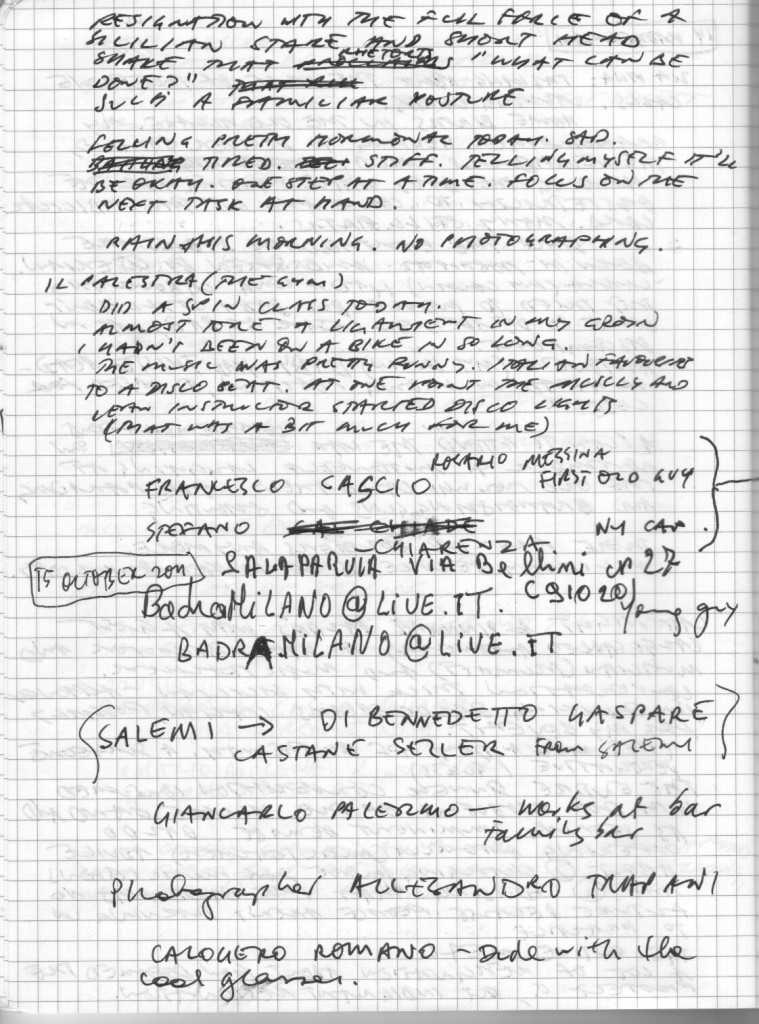 RESIGNATION WITH THE FULL FORCE OF A
SICILIAN STARE AND SHORT HEAD
SHAKE THAT RHETORTS "WHAT CAN BE
DONE?"
SUCH A FAMILIAR POSTURE
FEELING PRETTY HORMONAL TODAY. SAD.
TIRED. STIFF. TELLING MYSELF IT'LL
BE OKAY. ONE STEP AT A TIME. FOCUS ON THE
NEXT TASK AT HAND.
RAIN THIS MORNING. NO PHOTOGRAPHING.
IL PALESTRA (THE GYM)
DID A SPIN CLASS TODAY.
ALMOST TORE A LIGAMENT IN MY GROIN
I HADN'T BEEN ON A BIKE IN SO LONG.
THE MUSIC WAS PRETTY FUNNY. ITALIAN FAVOURITES
TO A DISCO BEAT. AT ONE POINT THE MUSCLY AND
LEAN INSTRUCTOR STARTED DISCO LIGHTS
(THAT WAS A BIT MUCH FOR ME)
ROSARIO MESSINA
FRANCESCO CASCIO FIRST OLD GUY
STEFANO NY CAP.
CHIARENZA
15 OCTOBER 2011 SALAPARUTA VIA Bellini n 27
BadraMiLANO@LiVE.IT. (91020)
Young guy
BADRA.MILANO@LIVE.IT
SALEMI → DI BENNEDETTO GASPARE
CASTANE SELLER FROM SALEMI
GIANCARLO PALERMO — works at bar
family bar
Photographer ALLESANDRO TRAPANI
CALOGERO ROMANO - Dude with the
cool glasses.